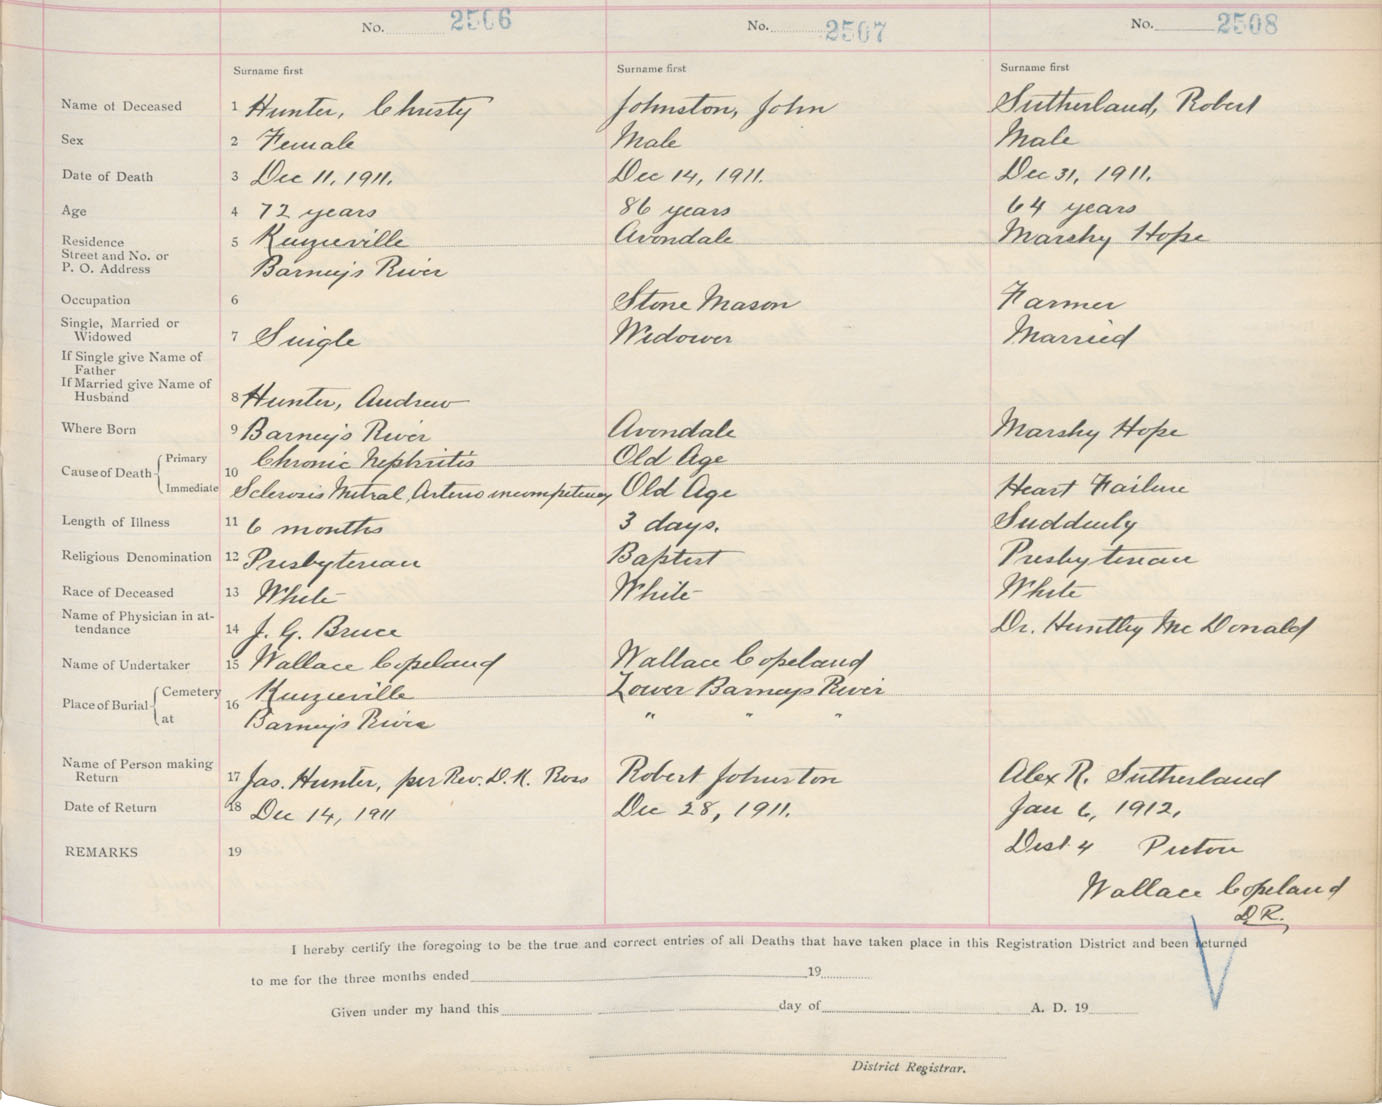 No. 2506 No. 2507 No. 2508
Surname first Surname first Surname first
Name of Deceased 1 Hunter, Christy Johnston, John Sutherland, Robert
Sex 2 Female Male Male
Date of Death 3 Dec 11, 1911. Dec 14, 1911. Dec 31, 1911.
Age 4 72 years 86 years 64 years
Residence 5 Kenzieville Avondale Marshy Hope
Street and No. or
P. O. Address Barney's River
Occupation 6 Stone Mason Farmer
Single, Married or
Widowed 7 Single Widower Married
If Single give Name of
Father
If Married give Name of
Husband 8 Hunter, Andrew
Where Born 9 Barney's River Avondale Marshy Hope
Cause of Death Primary 10 Chronic Nephritis Old Age
Immediate Sclerosis Mitral, Arterio incompetency Old Age Heart Failure
Length of Illness 11 6 months 3 days. Suddenly
Religious Denomination 12 Presbyterian Baptist Presbyterian
Race of Deceased 13 White White White
Name of Physician in at-
tendance 14 J. G. Bruce Dr. Huntley McDonald
Name of Undertaker 15 Wallace Copeland Wallace Copeland
Place of Burial Cemetery 16 Kenzieville Lower Barneys River
at Barney's River " " "
Name of Person making
Return 17 Jas. Hunter, per Rev. D. K. Ross Robert Johnston Alex R. Sutherland
Date of Return 18 Dec 14, 1911 Dec 28, 1911. Jan 6, 1912.
REMARKS 19 Dist 4 Pictou
Wallace Copeland
D.R.
I hereby certify the foregoing to be the true and correct entries of all Deaths that have taken place in this Registration District and been returned
to me for the three months ended 19
Given under my hand this day of A. D. 19
District Registrar.